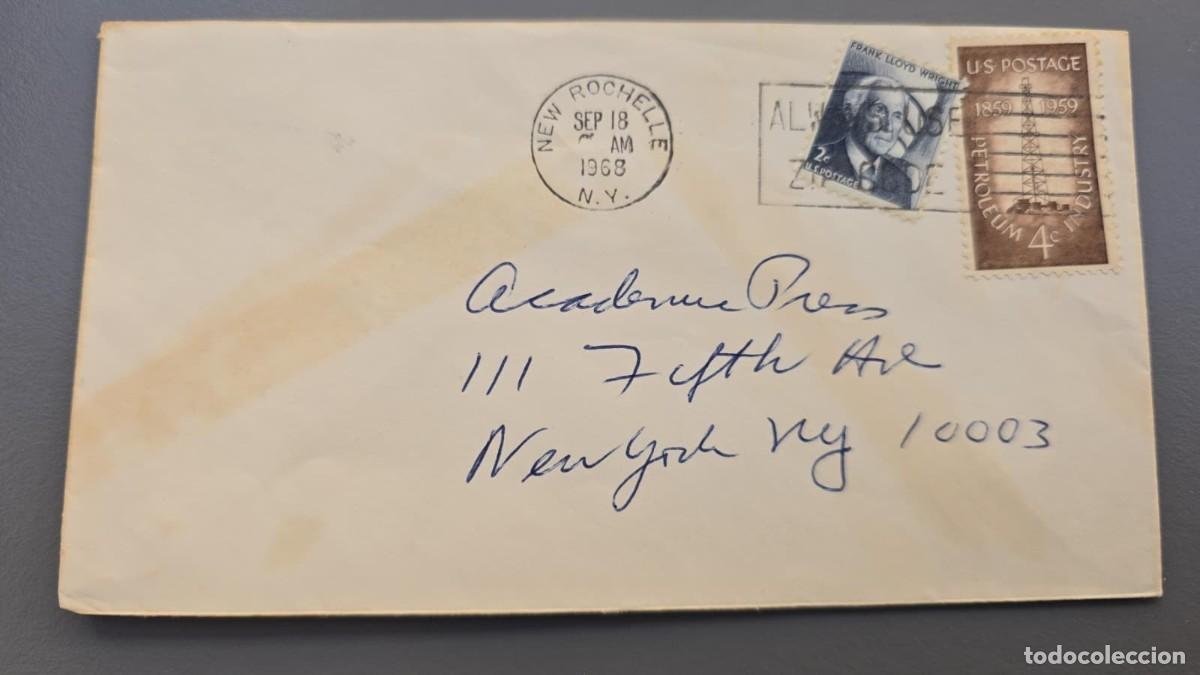 NEW ROCHELLE
SEP 18
AM
1968
N.Y.
ALWAYS USE
ZIP CODE
FRANK LLOYD WRIGHT
2c
U.S. POSTAGE
U.S. POSTAGE
1859 1959
PETROLEUM INDUSTRY
4c
Academic Press
111 Fifth Ave
New York NY 10003
todocoleccion